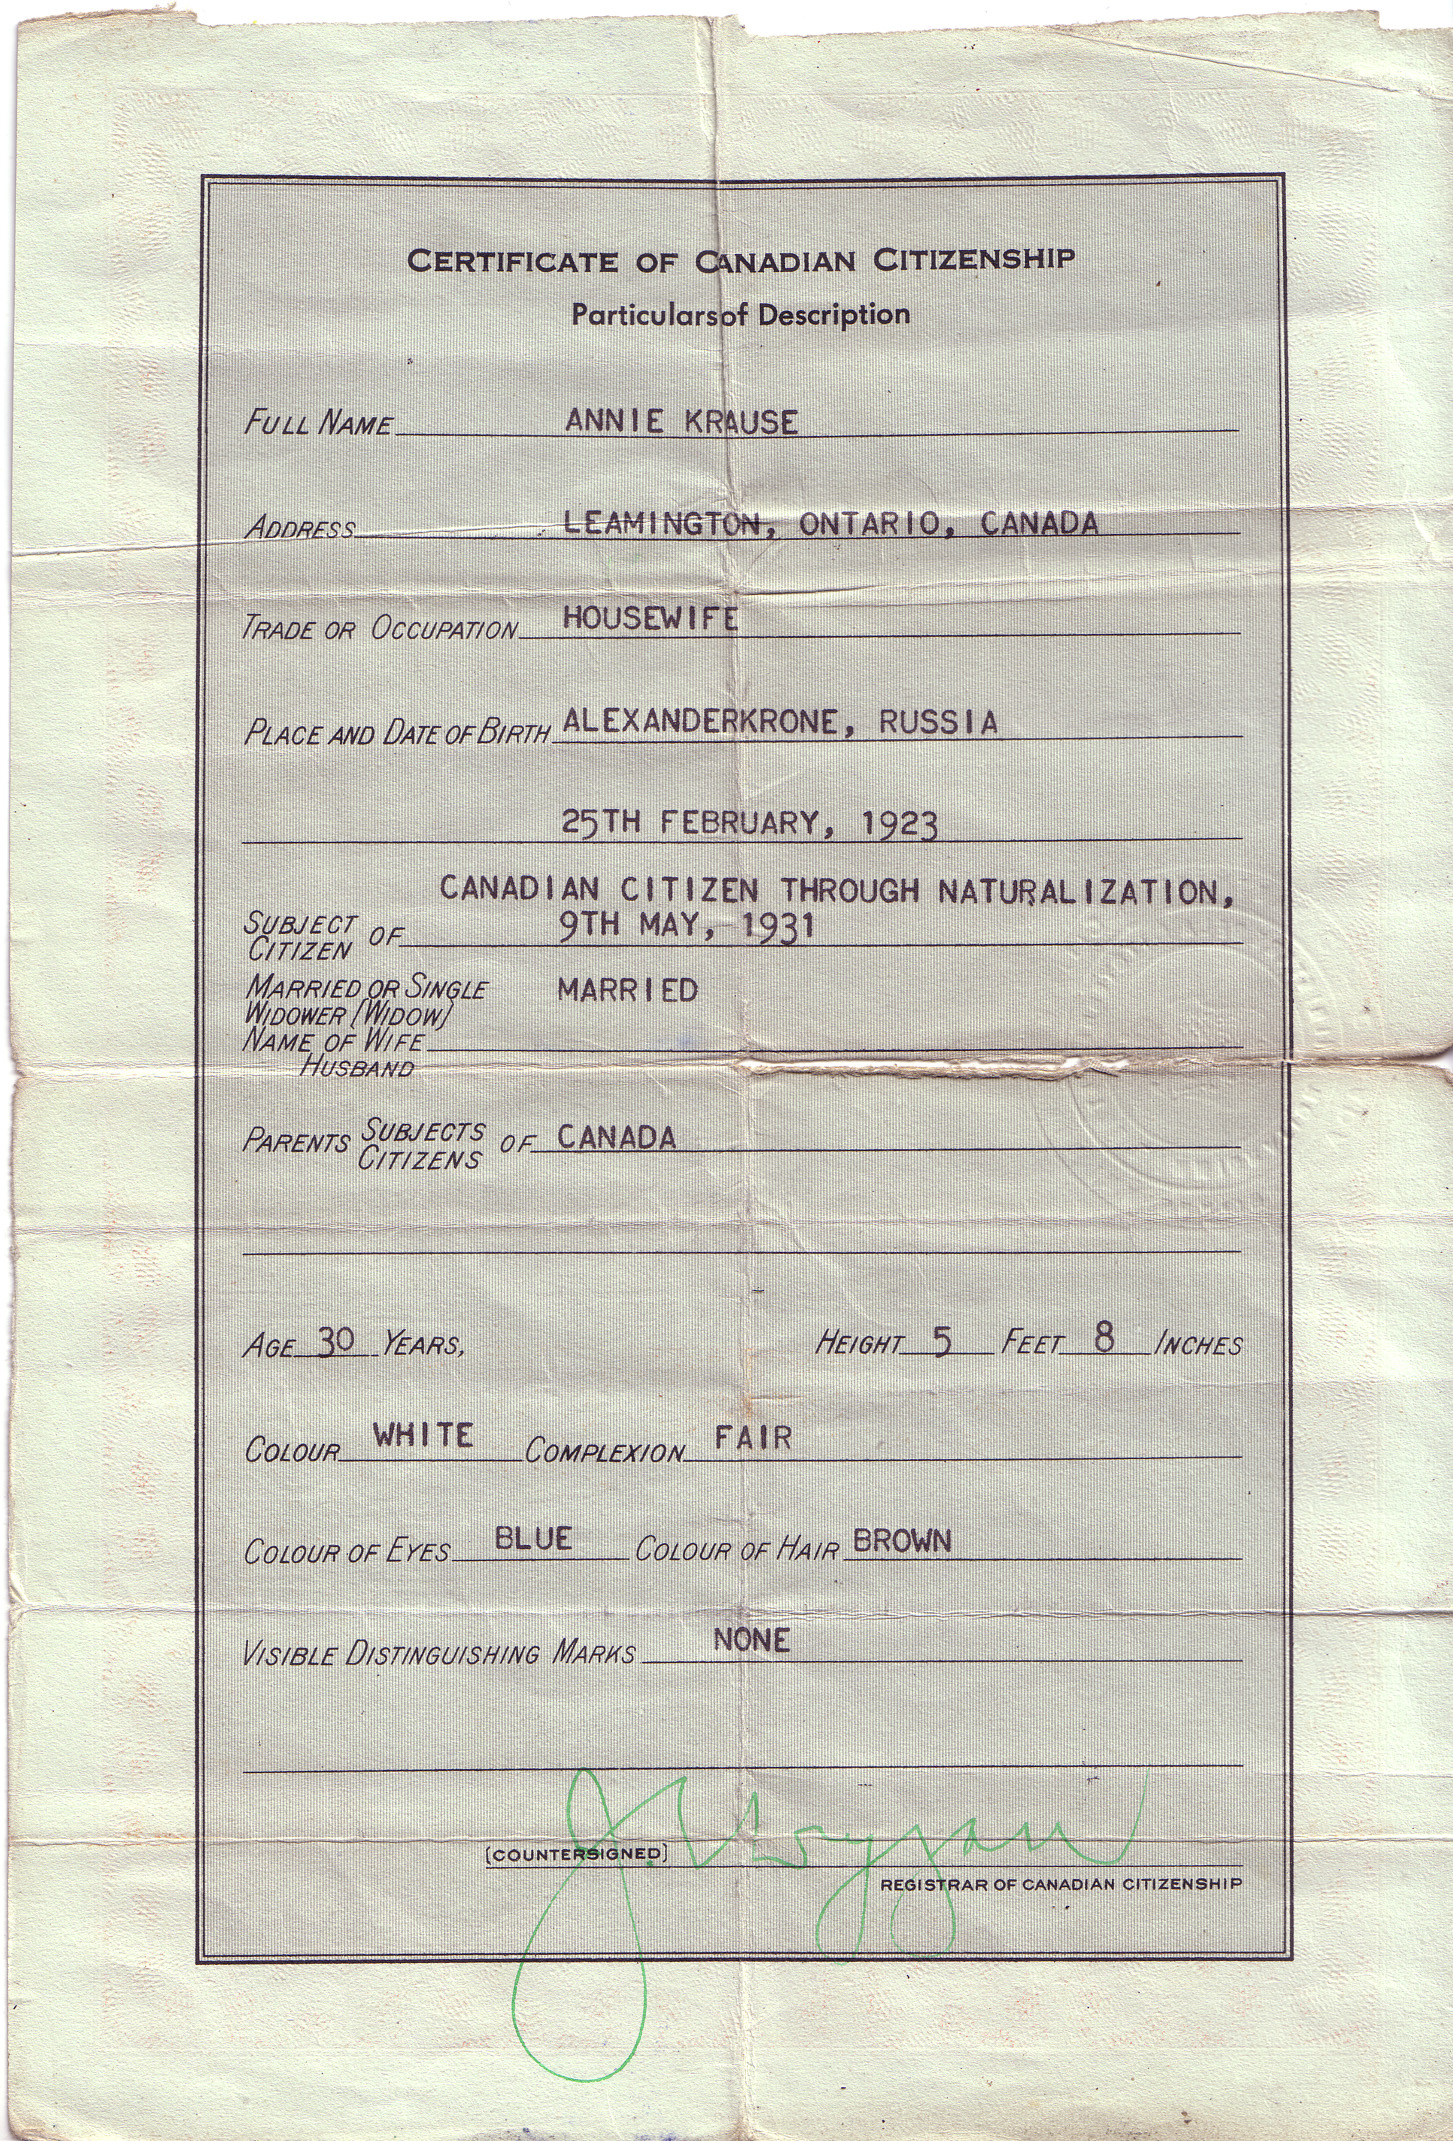 CERTIFICATE OF CANADIAN CITIZENSHIP
Particulars of Description
FULL NAME ANNIE KRAUSE
ADDRESS LEAMINGTON, ONTARIO, CANADA
TRADE OR OCCUPATION HOUSEWIFE
PLACE AND DATE OF BIRTH ALEXANDERKRONE, RUSSIA
25TH FEBRUARY, 1923
CANADIAN CITIZEN THROUGH NATURALIZATION,
SUBJECT OF 9TH MAY, 1931
CITIZEN
MARRIED OR SINGLE MARRIED
WIDOWER (WIDOW)
NAME OF WIFE
HUSBAND
PARENTS SUBJECTS OF CANADA
CITIZENS
AGE 30 YEARS, HEIGHT 5 FEET 8 INCHES
COLOUR WHITE COMPLEXION FAIR
COLOUR OF EYES BLUE COLOUR OF HAIR BROWN
VISIBLE DISTINGUISHING MARKS NONE
(COUNTERSIGNED)
REGISTRAR OF CANADIAN CITIZENSHIP